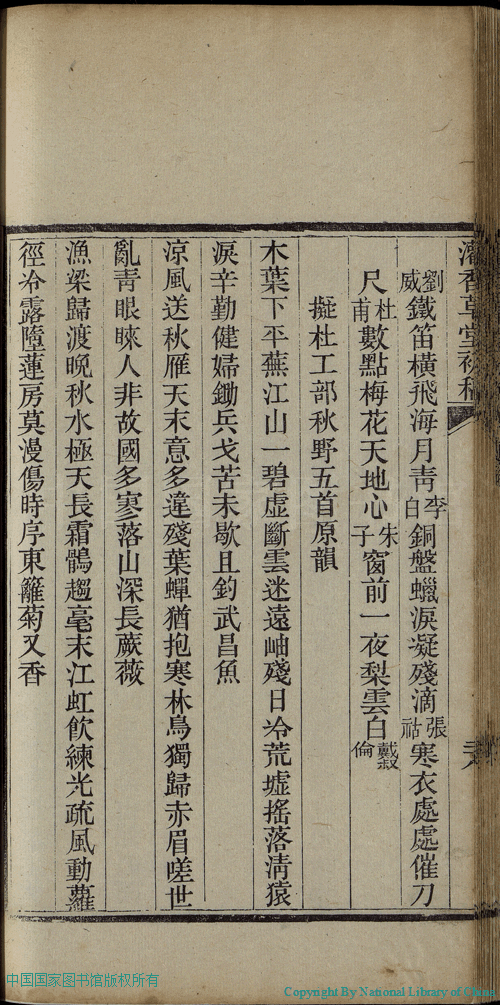 香草堂初稿
劉威鐵笛橫飛海月靑李白銅盤蠟淚凝殘滴張祜寒衣處處催刀
尺杜甫數點梅花天地心朱子窗前一夜梨雲白戴叔倫
擬杜工部秋野五首原韻
木葉下平蕪江山一碧虛斷雲迷遠岫殘日冷荒墟搖落淸猿
淚辛勤健婦鋤兵戈苦未歇且釣武昌魚
涼風送秋雁天末意多違殘葉蟬猶抱寒林鳥獨歸赤眉嗟世
亂靑眼睞人非故國多寥落山深長蕨薇
漁梁歸渡晚秋水極天長霜鶻趨毫末江虹飮練光疏風動蘿
徑冷露墮蓮房莫漫傷時序東籬菊又香
中国国家图书馆版权所有
Copyright By National Library of China